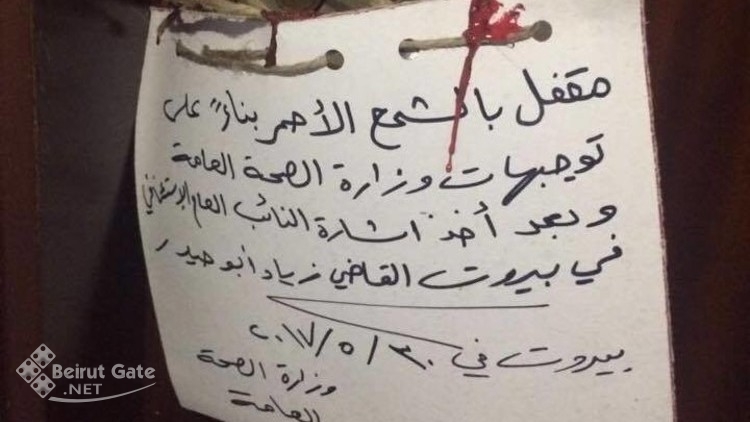 مقفل بالشمع الأحمر بناءً على
توجيهات وزارة الصحة العامة
وبعد أخذ اشارة النائب العام الإستئنافي
في بيروت القاضي زياد أبو حيدر
بيروت في ٣٠/٥/٢٠١٧
وزارة الصحة
العامة
Beirut Gate
.NET